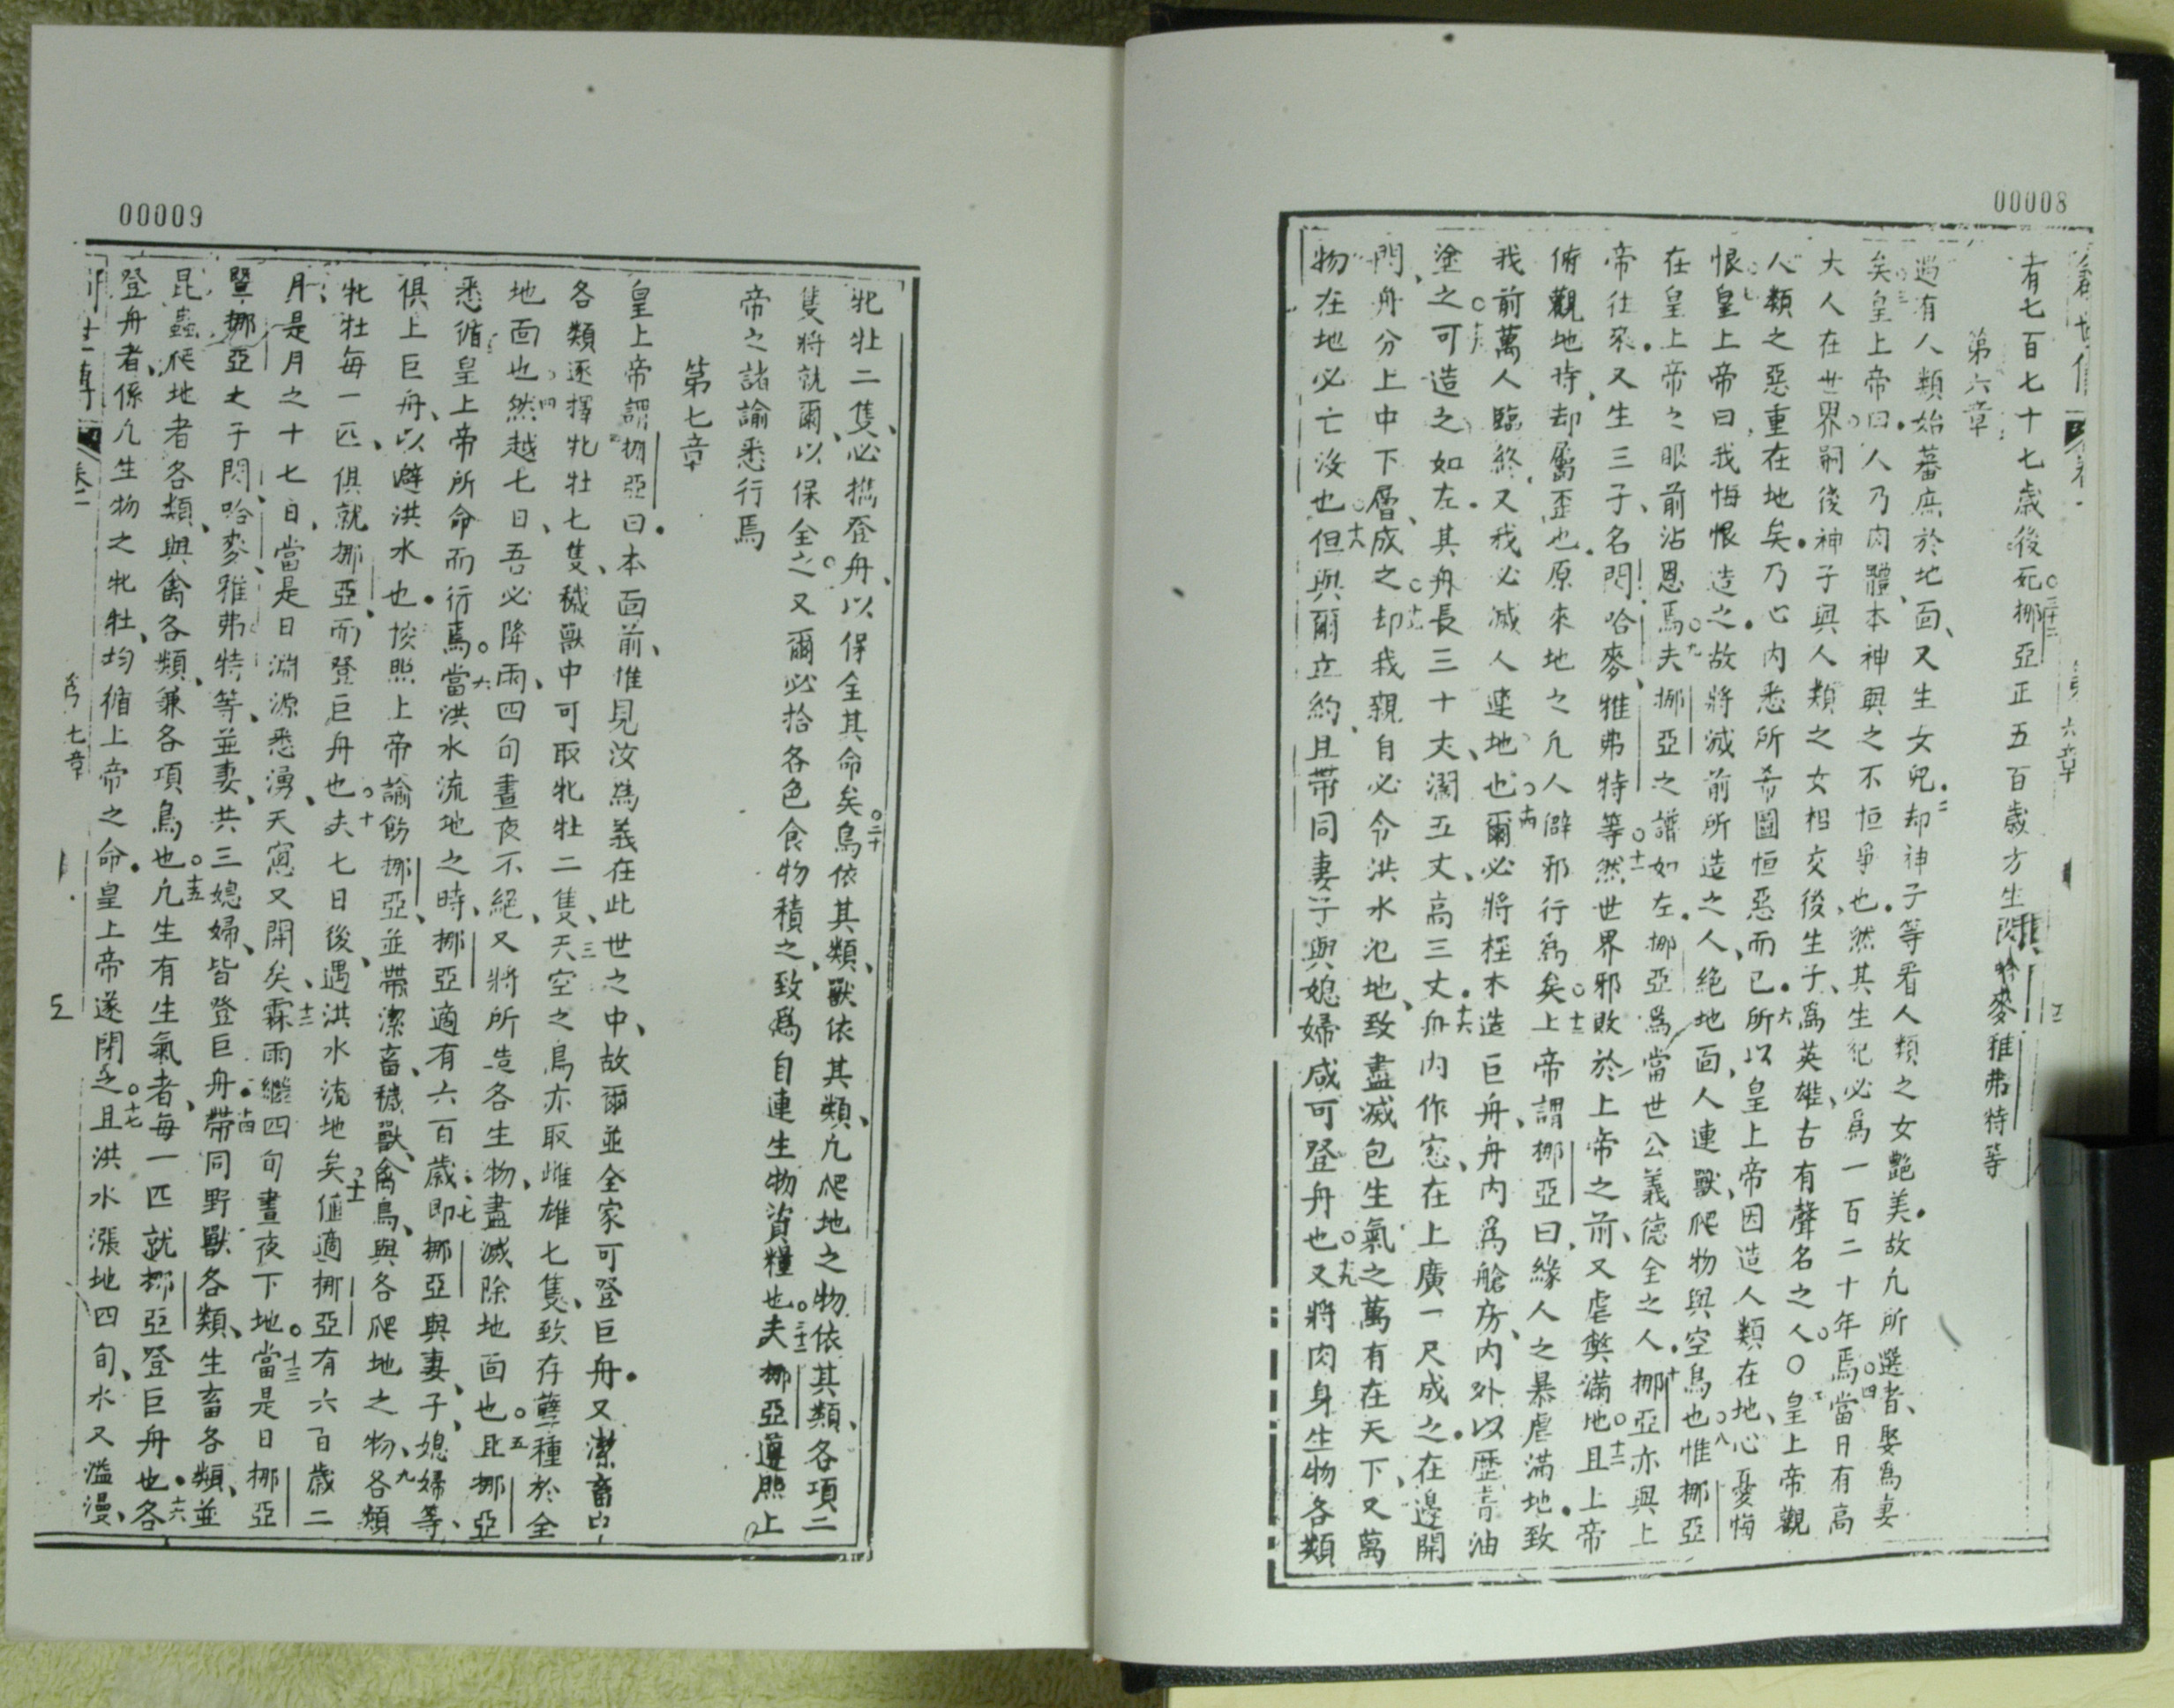 00008
有七百七十七歲後死挪亞正五百歲方生閃哈麥雅弗特等
第六章
遇有人類始蕃庶於地面又生女兒却神子等看人類之女艷美故凡所選者娶爲妻
矣皇上帝曰人乃肉體本神與之不恒爭也然其生紀必爲一百二十年焉當日有高
大人在世界嗣後神子與人類之女相交後生子爲英雄古有聲名之人〇皇上帝觀
人類之惡重在地矣乃心內悉所希圖恒惡而已所以皇上帝因造人類在地心憂悔
恨皇上帝曰我悔恨造之故將滅前所造之人絕地面人連獸爬物與空鳥也惟挪亞
在皇上帝之眼前沾恩焉夫挪亞之譜如左挪亞爲當世公義德全之人挪亞亦與上
帝往來又生三子名閃哈麥雅弗特等然世界邪敗於上帝之前又虐獘滿地且上帝
俯觀地時却屬歪也原來地之凡人僻邪行爲矣上帝謂挪亞曰緣人之暴虐滿地致
我前萬人臨終又我必滅人連地也爾必將桱木造巨舟舟內爲艙房內外以瀝青油
塗之可造之如左其舟長三十丈濶五丈高三丈舟內作窓在上廣一尺成之在邊開
門舟分上中下層成之却我親自必令洪水氾地致盡滅包生氣之萬有在天下又萬
物在地必亡沒也但與爾立約且帶同妻子與媳婦咸可登舟也又將肉身生物各類
00009
牝牡二隻必攜登舟以保全其命矣鳥依其類獸依其類凡爬地之物依其類各項二
隻將就爾以保全之又爾必拾各色食物積之致爲自連生物資糧也夫挪亞遵照上
帝之諸諭悉行焉
第七章
皇上帝謂挪亞曰本面前惟見汝爲義在此世之中故爾並全家可登巨舟又潔畜中
各類逐擇牝牡七隻穢獸中可取牝牡二隻天空之鳥亦取雌雄七隻致存孽種於全
地面也然越七日吾必降雨四旬晝夜不絕又將所造各生物盡滅除地面也且挪亞
悉循皇上帝所命而行焉當洪水流地之時挪亞適有六百歲即挪亞與妻子媳婦等
俱上巨舟以避洪水也按照上帝諭飭挪亞並帶潔畜穢獸禽鳥與各爬地之物各類
牝牡每一匹俱就挪亞而登巨舟也夫七日後遇洪水流地矣値適挪亞有六百歲二
月是月之十七日當是日淵源悉湧天窓又開矣霖雨繼四旬晝夜下地當是日挪亞
曁挪亞之子閃哈麥雅弗特等並妻共三媳婦皆登巨舟帶同野獸各類生畜各類並
昆蟲爬地者各類與禽各類兼各項鳥也凡生有生氣者每一匹就挪亞登巨舟也各
登舟者係凡生物之牝牡均循上帝之命皇上帝遂閉之且洪水漲地四旬水又溢漫